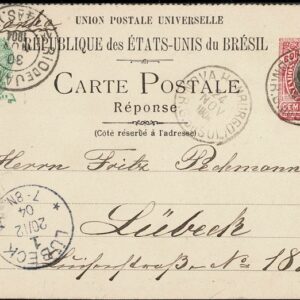 UNION POSTALE UNIVERSELLE
RÉPUBLIQUE DES ÉTATS-UNIS DU BRÉSIL
CARTE POSTALE
Réponse
(Côté réservé à l'adresse)
Herrn Fritz Pochmann
Lübeck
No 18
LÜBECK
1
20/12
04
7-8N
30
NOV
1904
NOVA HAMBURGO